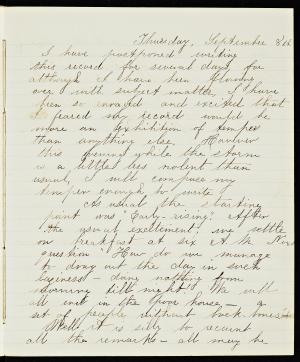 Thursday, September
I have postponed writing
this record for several days, for
although I have been flowing
over with subject matter, I have
been so enraged and excited that
I feared my record would be
more an exhibition of temper
than anything else. However
this evening while the storm
is a little less violent than
usual, I will compose my
temper enough to write.
As usual the starting
point was "Early-rising." After
the usual excitement, we settle
on breakfast at six A.M.
question "How do we manage
to drag out the day in such
laziness - doing nothing from
morning till night" We will
all end in the poor house, - a
set of people without back bone
Well, it is silly to recount
all the remarks - all may be